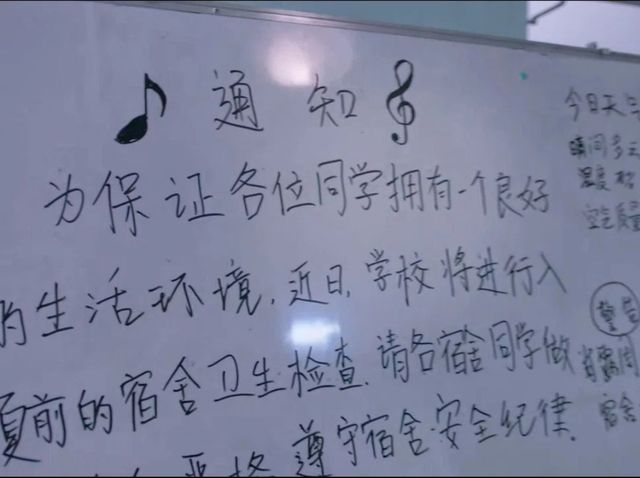 通知
为保证各位同学拥有一个良好
的生活环境,近日,学校将进行入
夏前的宿舍卫生检查.请各宿舍同学做
严格遵守宿舍安全纪律.
今日天气
晴间多云
温度
空气质量
宿舍